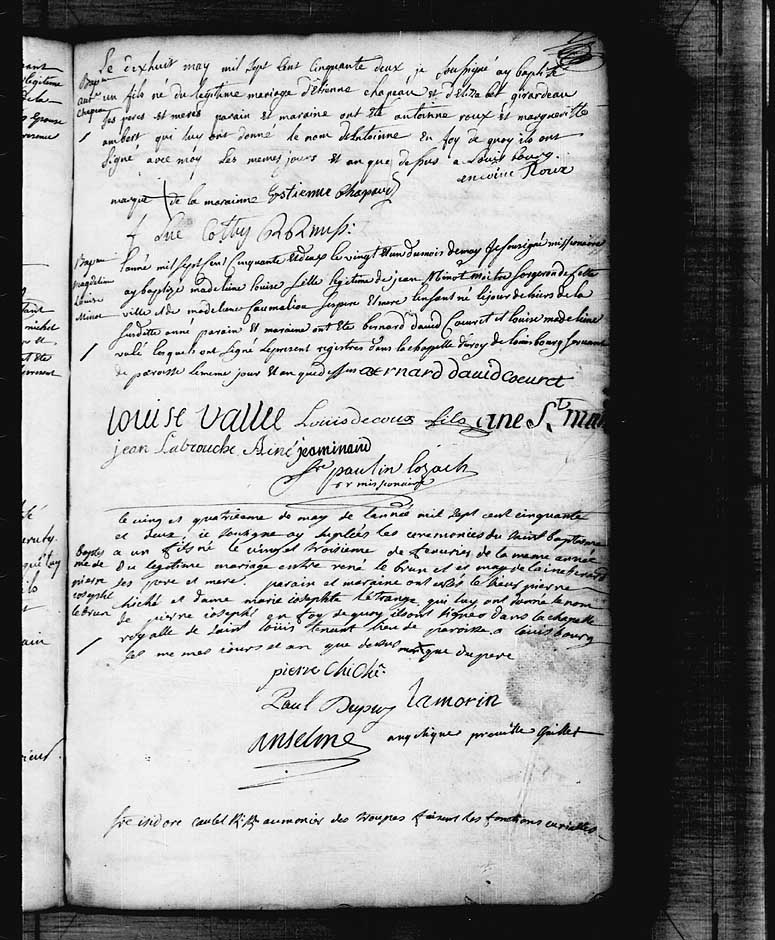 Le dixhuit may mil sept cent cinquante deux je soussigné ay baptisé
Bapm
ant.
chapeau
un fils né du legitime mariage d'Etienne chapeau et d'Elizabet girardeau
ses peres et meres parain et maraine ont eté antoinne roux et margueritte
ambert, qui luy ont donne le nom d'Antoinne En foy de quoy ils ont
signé avec moy les memes jours et an que de sus a Louisbourg.
antoine Roux
marque de la marainne Estienne Chapeau
f Luc
Bapm
magdeleine
Louise
Minot
Lanné mil sept sent Cinquante et deux le vingt et un du mois de may je sousigné missionaire
ay baptizé madeleine louise fille legitime de jean Minot maitre forgeron de sette
ville et de madelene Caumalion ses pere et mere lenfant né le jour de hiers de la
susditte anné parain et maraine ont eté bernard david Coeuret et louise madeleine
valé lesquels ont signé le present registres dans la chappelle du roy de louisbourg servant
de paroisse le meme jour et an que desus Bernard david coeuret
louise vallee Louis decoux fils ane St
jean Labrouche Ainé jeaminaud
fre paulin lozach
mr missionaire
le ving et quatrieme de may de lannée mil sept cent cinquante
et deux, je sousigne ay suplées les ceremonies du saint baptesme
baptes
me de
pierre
iosephe
le brun
a un fils né le vingt et troisieme de fevrier de la meme année
du legitime mariage entre rené le brun et
ses pere et mere. parain et maraine ont estes le sieur pierre
chiché et dame marie iosephte letrange qui luy ont donné le nom
de pierre iosephe en foy de quoy ils ont signes dans la chapelle
royalle de saint louis tenant lieu de paroisse a louisbourg
les memes iours et an que desus marque du pere
pierre chiché
Paul Dupuy Lamorin
anselme angelique
fre isidore caulet aumonier des troupes faisant les fonctions curialles